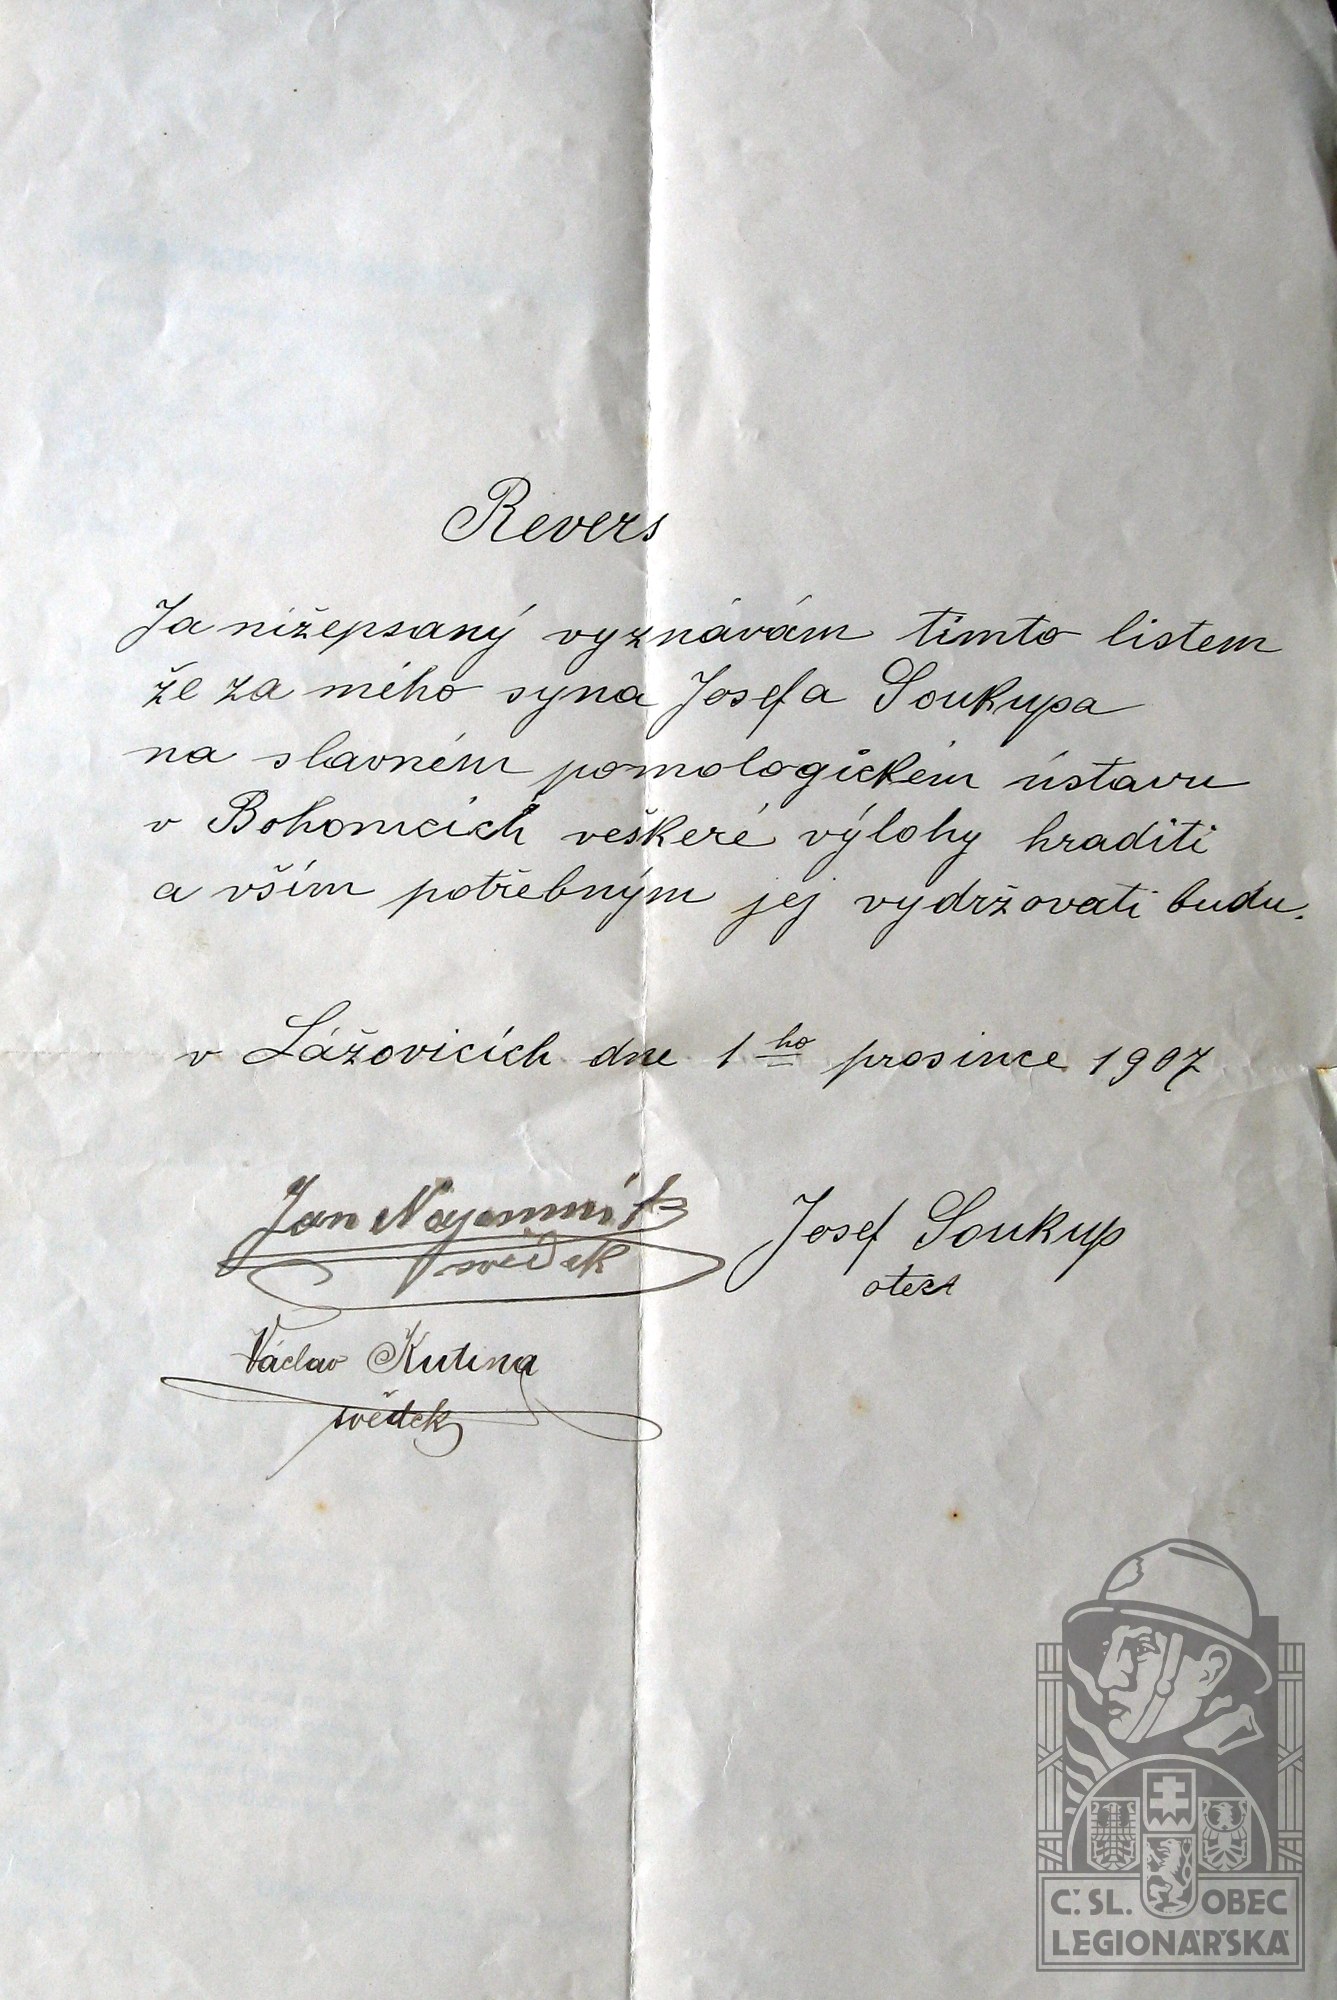 Revers
Ja nížepsaný vyznávám tímto listem
že za mého syna Josefa Soukupa
na slavném pomologickém ústavu
v Bohonicích veškeré výlohy hraditi
a vším potřebným jej vydržovati budu.
v Lážovicích dne 1ho prosince 1907
Jan Najemník Josef Soukup
svědek otec
Václav Kutina
svědek
Č. SL. OBEC
LEGIONÁŘSKÁ